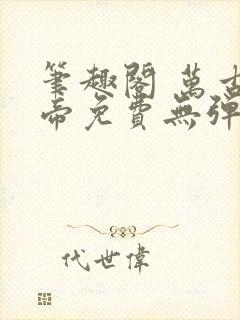 筆趣閣 萬古
帝免費無彈
代世偉